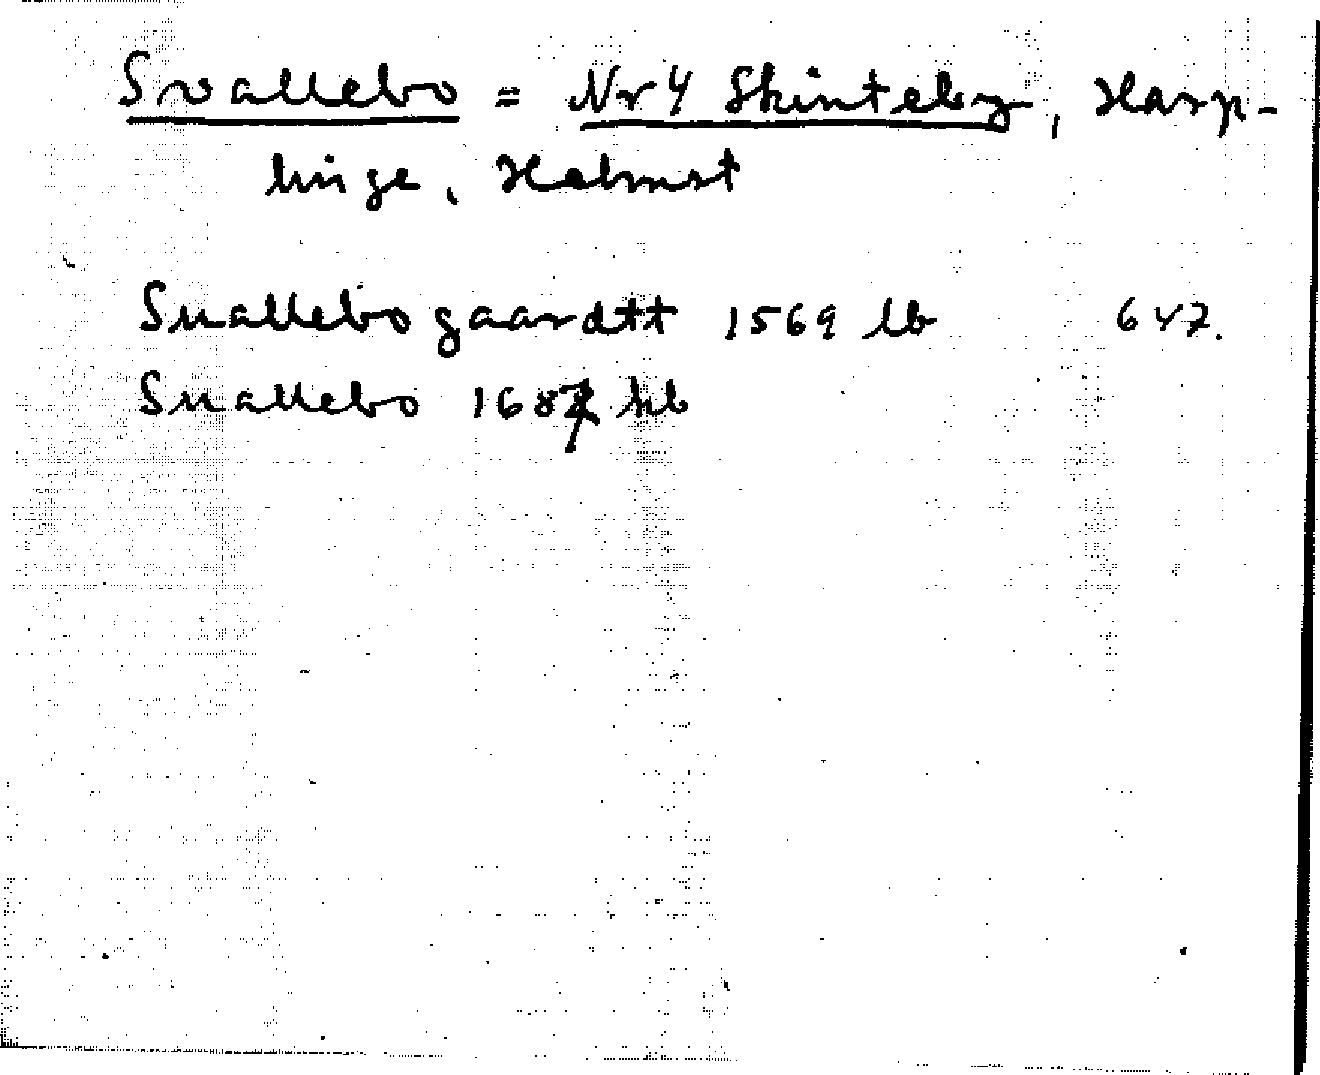 Svallebo = Nr 4 Skinteby, Harp-
linge, Halmst
Suallebogaardtt 1569 lb 647.
Suallebo 1687 hb